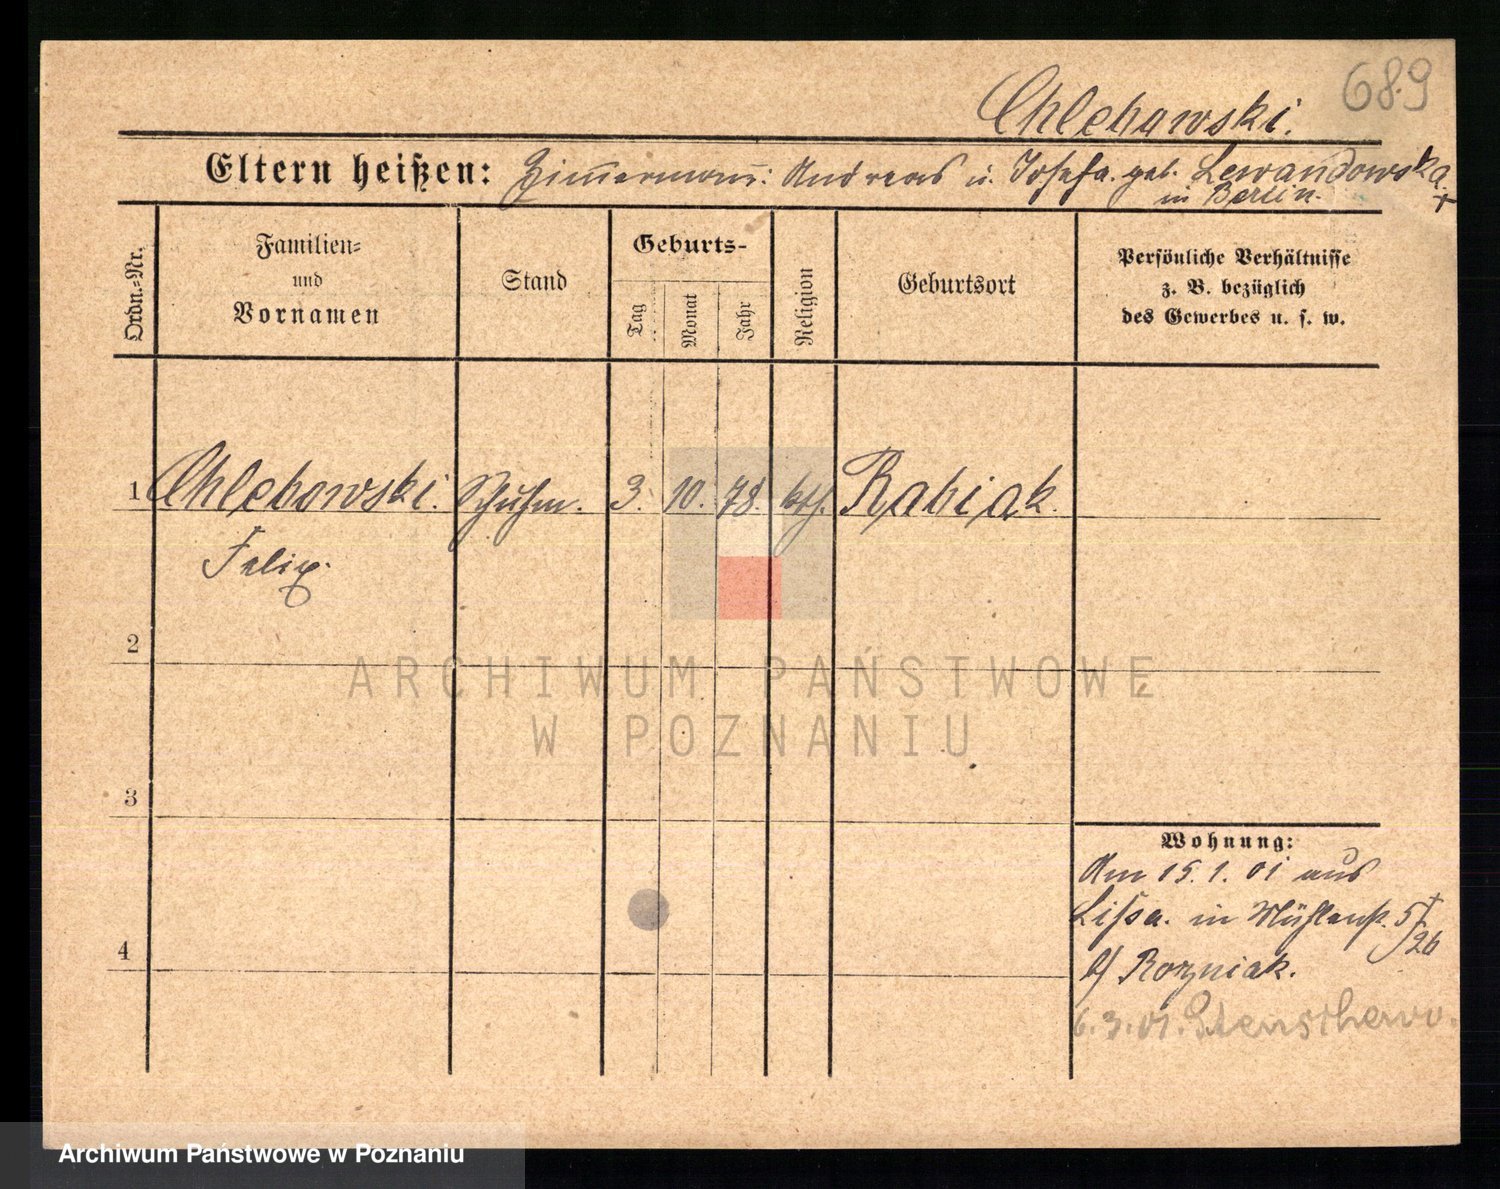 689
Chlebowski.
Eltern heißen: Zimmermann: Andreas u. Josefa. geb. Lewandowska
in Berlin. +
Ordn.-Nr.
Familien-
und
Vornamen
Stand
Geburts-
Tag
Monat
Jahr
Religion
Geburtsort
Persönliche Verhältnisse
z. B. bezüglich
des Gewerbes u. s. w.
1 Chlebowski. Schuhm. 3. 10. 78. kth. Rabiak.
Felix.
2
3
4
Wohnung:
Am 15.1.01 aus
Lissa. in Mühlenstr. 5/26
b/ Rozniak.
6.3.01.
ARCHIWUM PAŃSTWOWE
W POZNANIU
Archiwum Państwowe w Poznaniu